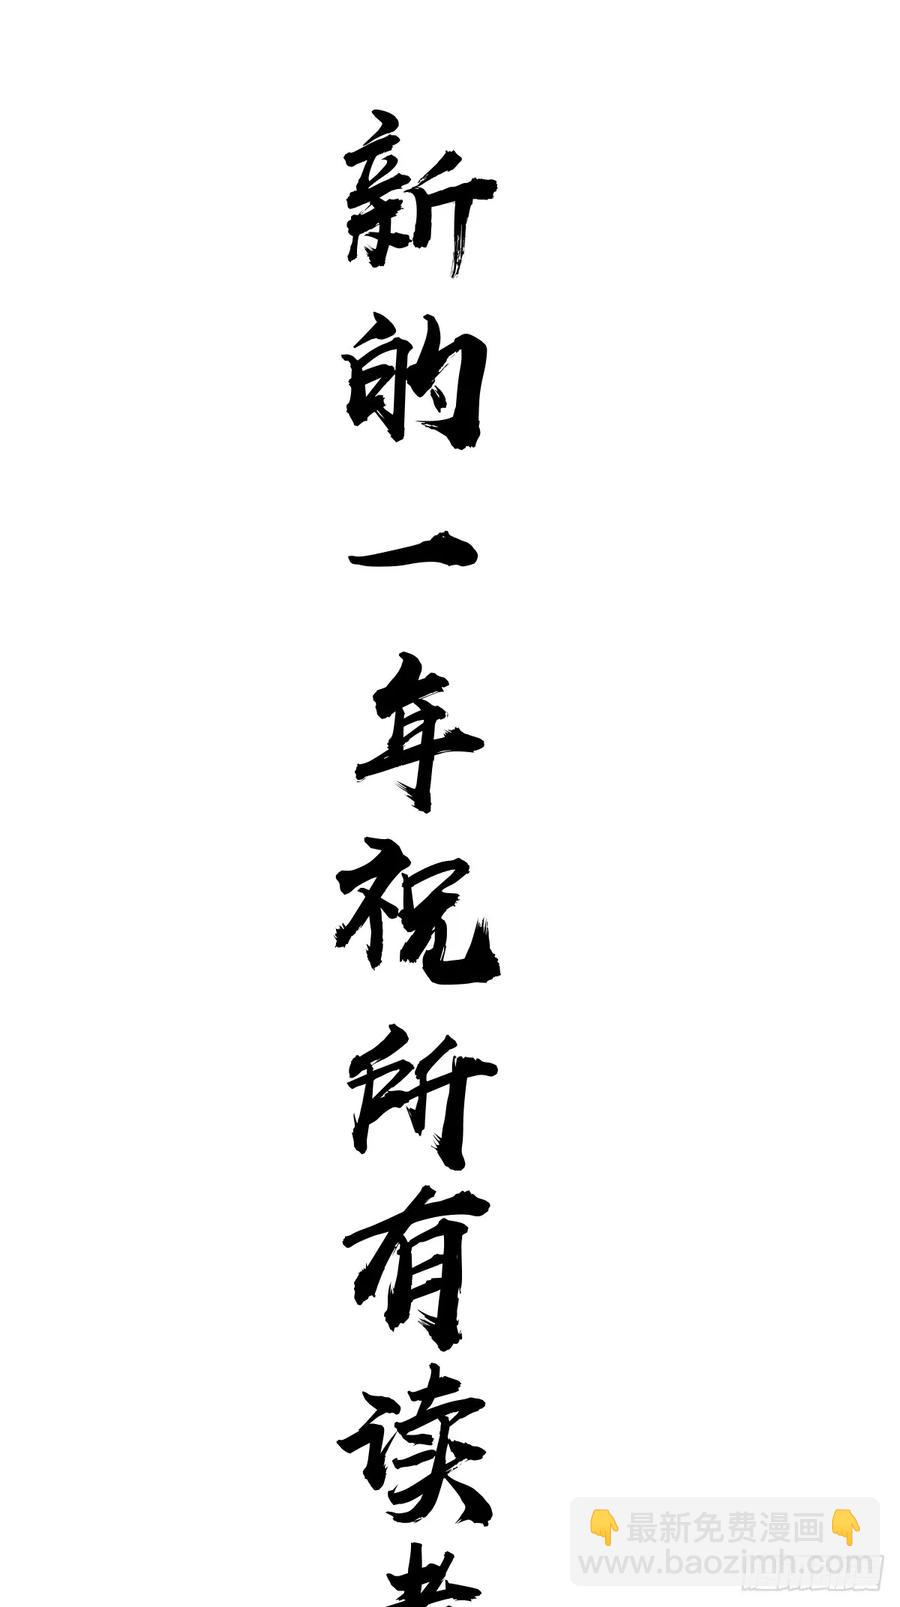 新的一年祝所有读者
👇最新免费漫画👇
www.baozimh.com